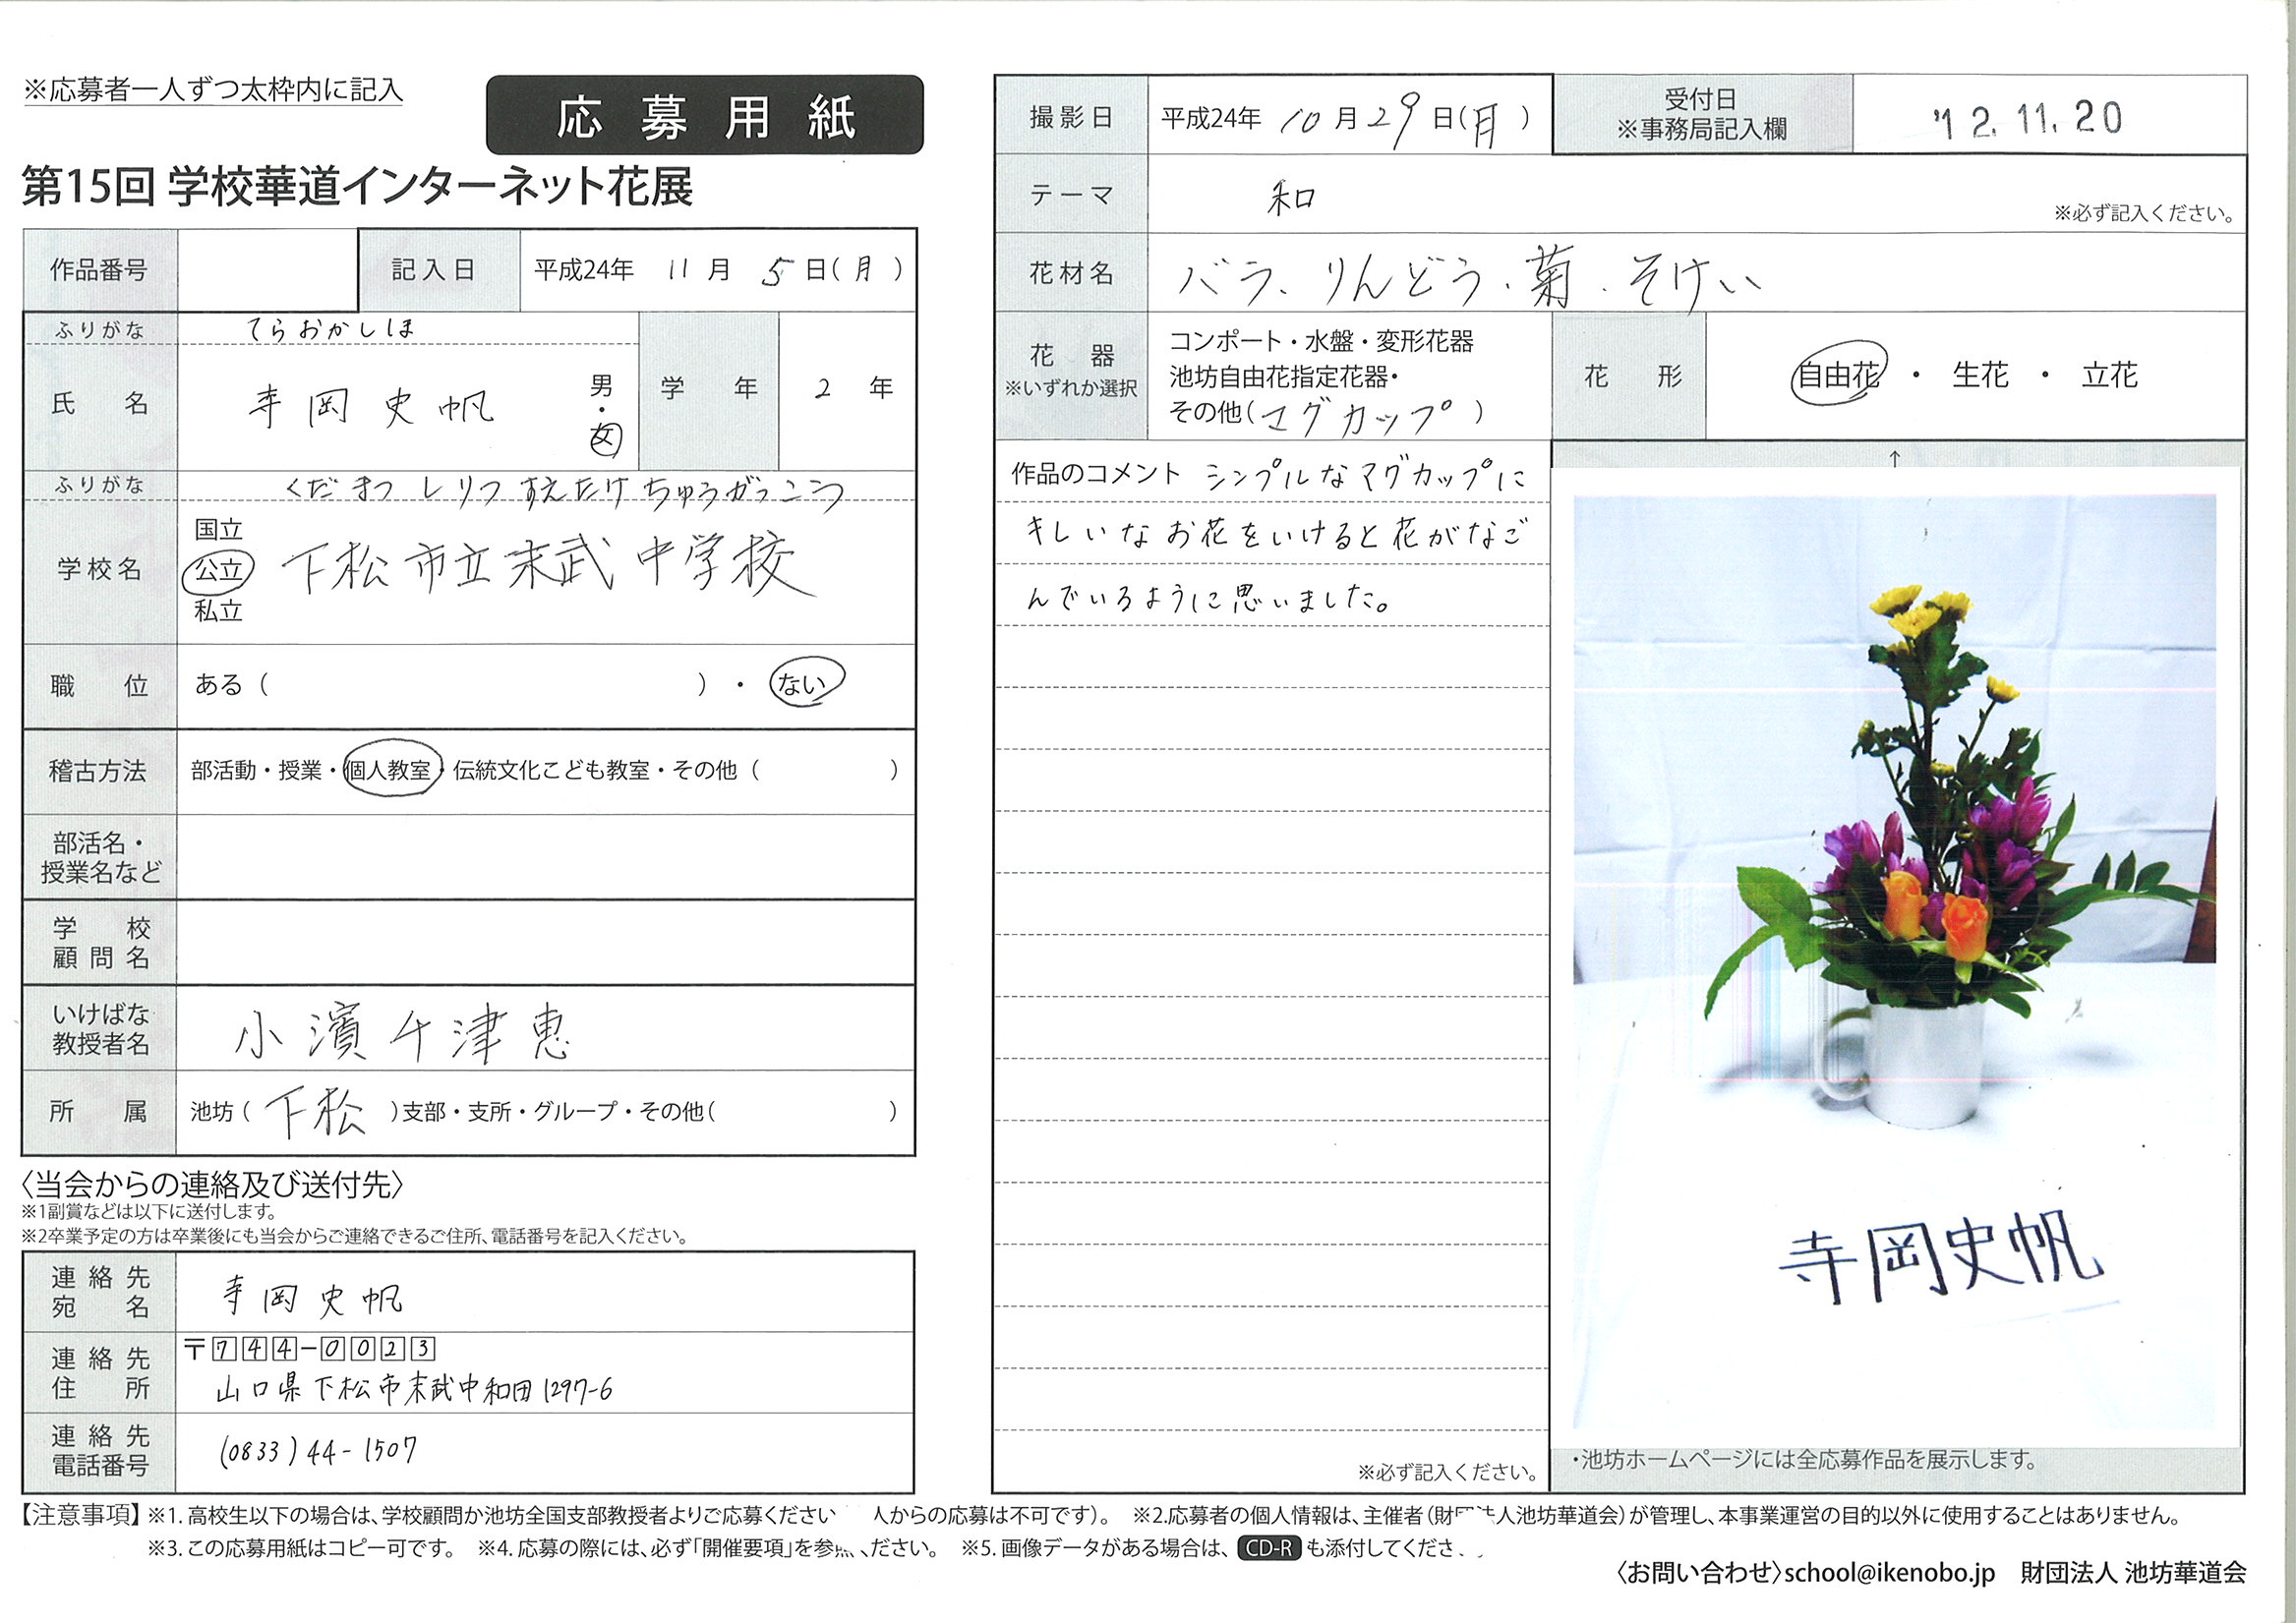 ※応募者一人ずつ太枠内に記入
応募用紙
第15回 学校華道インターネット花展
作品番号
記入日 平成24年 11月 5日(月)
ふりがな てらおかしほ
氏名 寺岡史帆 男・女
学年 2年
ふりがな くだまつしりつすえたけちゅうがっこう
学校名 国立 公立 私立 下松市立末武中学校
職位 ある( )・ない
稽古方法 部活動・授業・個人教室・伝統文化こども教室・その他( )
部活名・
授業名など
学校
顧問名
いけばな
教授者名 小濱千津恵
所属 池坊(下松)支部・支所・グループ・その他( )
〈当会からの連絡及び送付先〉
※1副賞などは以下に送付します。
※2卒業予定の方は卒業後にも当会からご連絡できるご住所、電話番号を記入ください。
連絡先
宛名 寺岡史帆
連絡先
住所 〒744-0023
山口県下松市末武中和田1297-6
連絡先
電話番号 (0833)44-1507
撮影日 平成24年 10月29日(月)
受付日
※事務局記入欄 '12.11.20
テーマ 和 ※必ず記入ください。
花材名 バラ、りんどう・菊・そけい
花器
※いずれか選択
コンポート・水盤・変形花器
池坊自由花指定花器・
その他(マグカップ)
花形 自由花 ・ 生花 ・ 立花
作品のコメント シンプルなマグカップに
キレいなお花をいけると花がなご
んでいるように思いました。
※必ず記入ください。
↑
寺岡史帆
・池坊ホームページには全応募作品を展示します。
【注意事項】※1.高校生以下の場合は、学校顧問か池坊全国支部教授者よりご応募ください 人からの応募は不可です)。 ※2.応募者の個人情報は、主催者(財団法人池坊華道会)が管理し、本事業運営の目的以外に使用することはありません。
※3.この応募用紙はコピー可です。 ※4.応募の際には、必ず「開催要項」を参照ください。 ※5.画像データがある場合は、CD-Rも添付してくださ
〈お問い合わせ〉school@ikenobo.jp 財団法人 池坊華道会